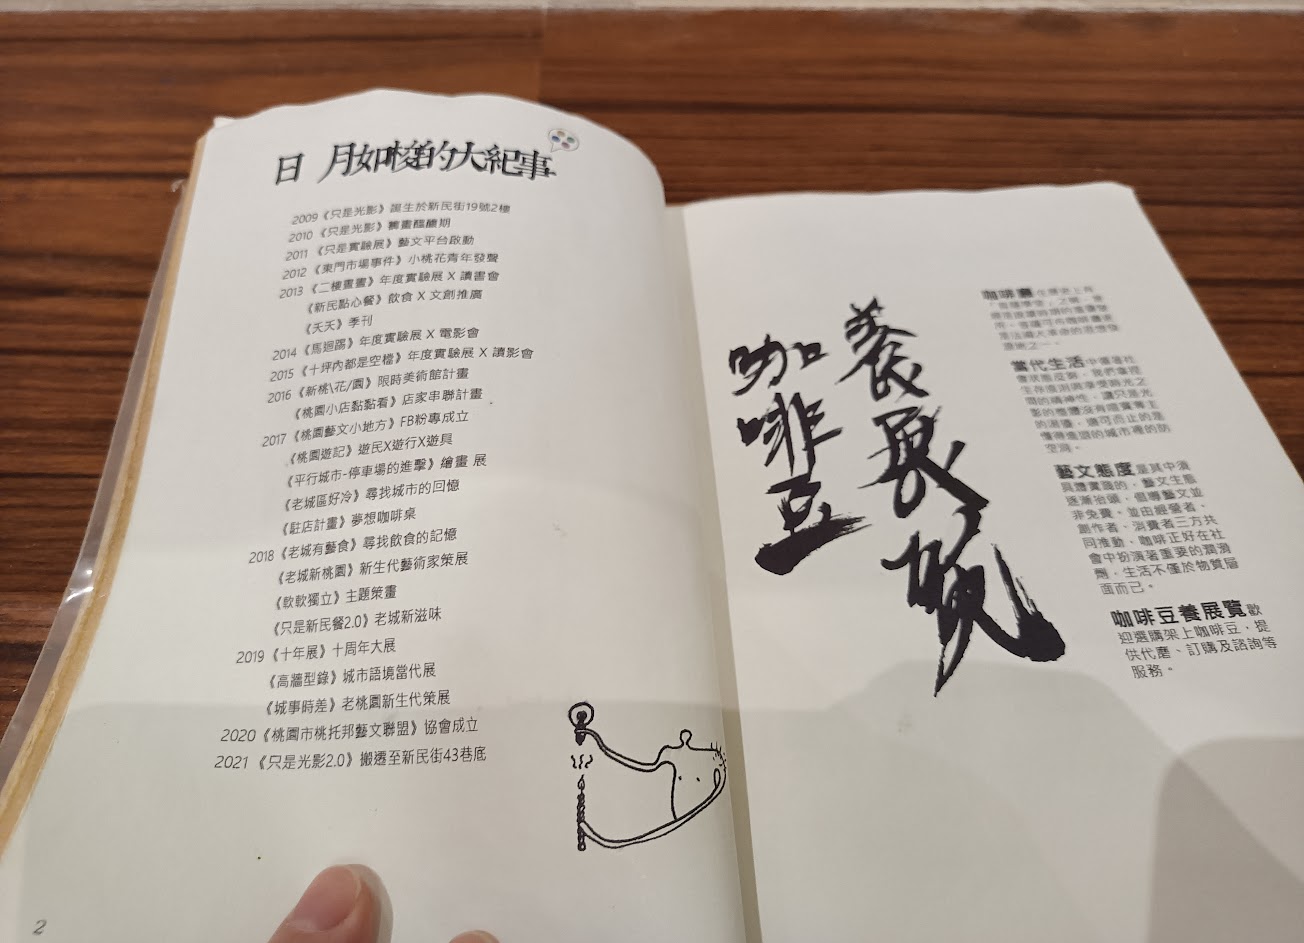 日月如梭的大紀事
2009《只是光影》誕生於新民街19號2樓
2010《只是光影》籌畫醞釀期
2011《只是實驗展》藝文平台啟動
2012《東門市場事件》小桃花青年發聲
2013《二樓晝畫》年度實驗展 X 讀書會
《新民點心餐》飲食 X 文創推廣
《夭夭》季刊
2014《馬迴踢》年度實驗展 X 電影會
2015《十坪內都是空檔》年度實驗展 X 讀影會
2016《新桃\花/園》限時美術館計畫
《桃園小店黏黏看》店家串聯計畫
2017《桃園藝文小地方》FB粉專成立
《桃園遊記》遊民X遊行X遊具
《平行城市-停車場的進擊》繪畫 展
《老城區好冷》尋找城市的回憶
《駐店計畫》夢想咖啡桌
2018《老城有藝食》尋找飲食的記憶
《老城新桃園》新生代藝術家策展
《軟軟獨立》主題策畫
《只是新民餐2.0》老城新滋味
2019《十年展》十周年大展
《高牆型錄》城市語境當代展
《城事時差》老桃園新生代策展
2020《桃園市桃托邦藝文聯盟》協會成立
2021《只是光影2.0》搬遷至新民街43巷底
2
咖啡豆
養展覽
咖啡
當代生活
藝文態度是其中須
具體實踐的，藝文生態
逐漸抬頭，倡導藝文並
非免費，並由經營者、
創作者、消費者三方共
同推動，咖啡正好在社
會中扮演著重要的潤滑
劑，生活不僅於物質層
面而已。
咖啡豆養展覽歡
迎選購架上咖啡豆，提
供代磨、訂購及諮詢等
服務。